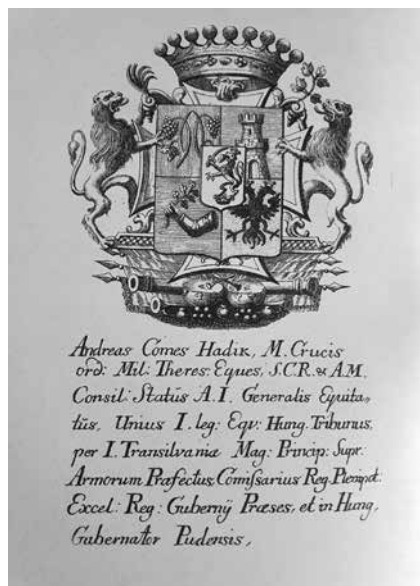 Andreas Cómes Hadik, M. Crucis
ord: Mil: Theres: Eques, S.C.R. & A.M.
Consil: Statûs A.I. Generalis Equita-
tûs, Unius I. leg: Eqv: Hung. Tribunus,
per I. Transilvaniæ Mag: Princip: Supr.
Armorum Præfectus, Comissarius Reg. Plenipot:
Excel: Reg: Gubernij Præses, et in Hung,
Gubernator Pudensis,